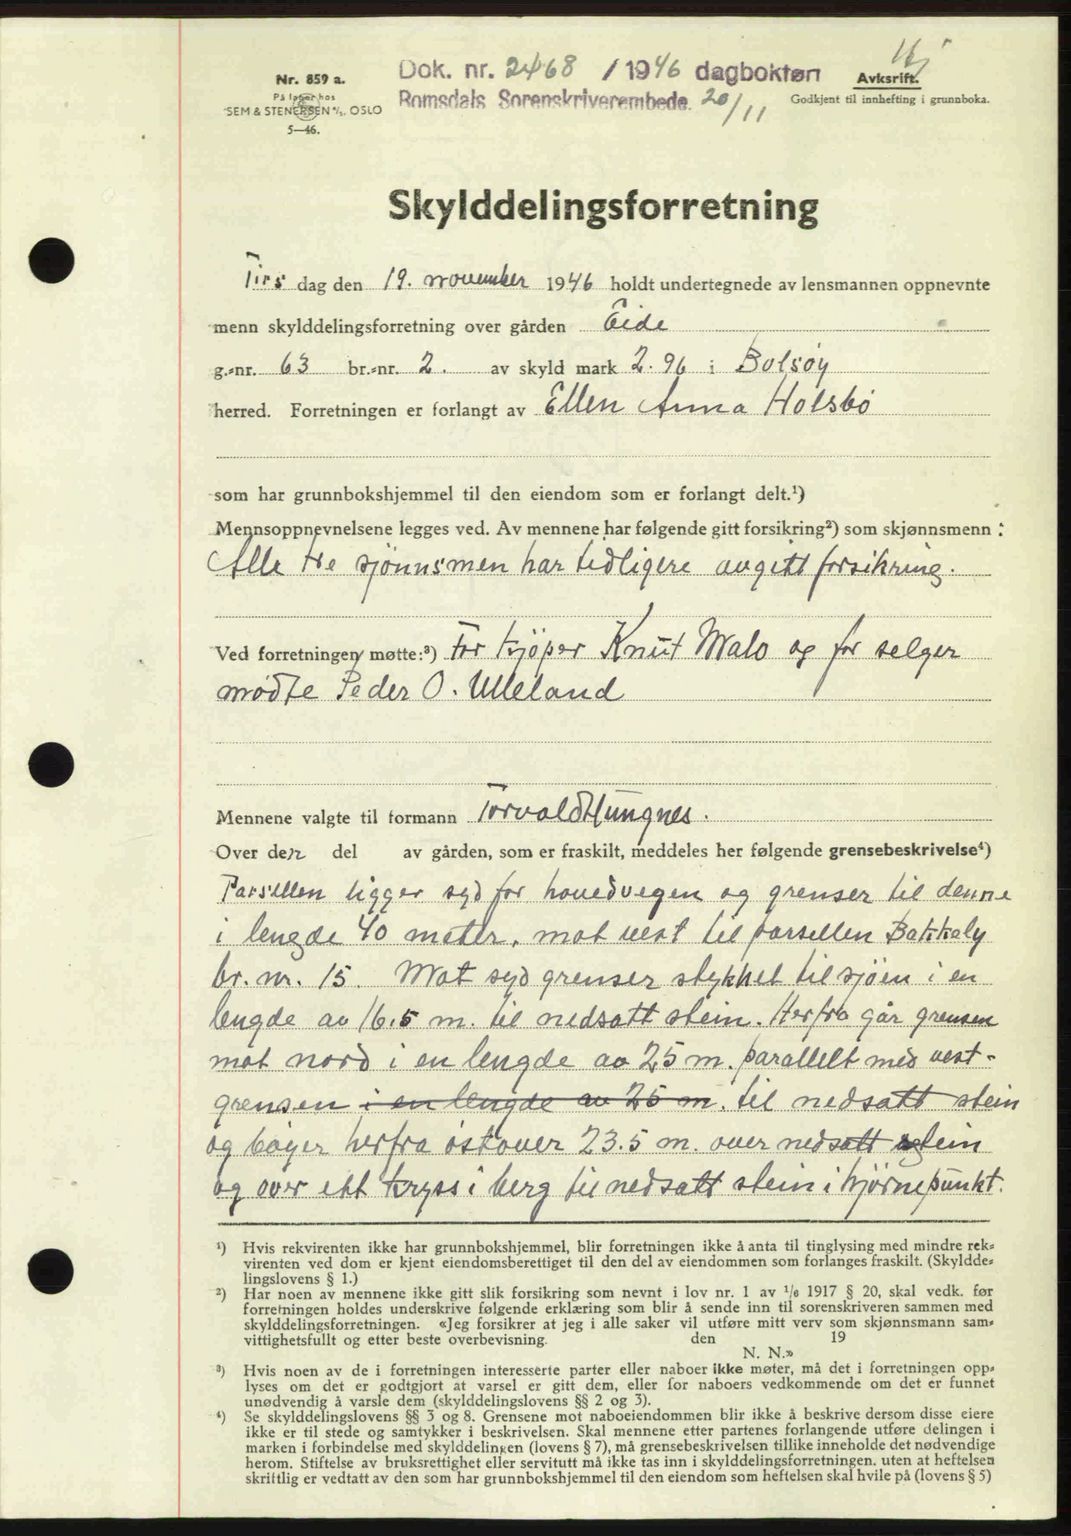 Nr. 859 a.
På lager hos
SEM & STENERSEN A/S. OSLO
5—46.
Dok. nr. 2468 / 1946 dagboktøn
Romsdals Sorenskriverembede. 20/11
Avksrift.
Godkjent til innhefting i grunnboka.
Skylddelingsforretning
Tirs dag den 19. november 1946 holdt undertegnede av lensmannen oppnevnte
menn skylddelingsforretning over gården Eide
g.-nr. 63 br.-nr. 2. av skyld mark 2.96 i Bolsøy
herred. Forretningen er forlangt av Ellen Anna Holsbö
som har grunnbokshjemmel til den eiendom som er forlangt delt.¹)
Mennsoppnevnelsene legges ved. Av mennene har følgende gitt forsikring²) som skjønnsmenn :
Alle tre sjönnsmen har tidligere avgitt forsikring.
Ved forretningen møtte:³) For kjöper Knut Malo og for selger
mødte Peder O. Ulleland
Mennene valgte til formann Torvald Hungnes.
Over den del av gården, som er fraskilt, meddeles her følgende grensebeskrivelse⁴)
Parsellen ligger syd for hovedvegen og grenser til denne
i lengde 40 meter, mot vest til parsellen Bakkely
br. nr. 15. Mot syd grenser stykket til sjöen i en
lengde av 16.5 m. til nedsatt stein. Herfra går grensen
mot nord i en lengde av 25 m. parallelt med vest-
grensen i en lengde av 25 m. til nedsatt stein
og böyer herfra östover 23.5 m. over nedsatt stein
og over ett kryss i berg til nedsatt stein i hjörnepunkt.
¹) Hvis rekvirenten ikke har grunnbokshjemmel, blir forretningen ikke å anta til tinglysing med mindre rek-
virenten ved dom er kjent eiendomsberettiget til den del av eiendommen som forlanges fraskilt. (Skyldde-
lingslovens § 1.)
²) Har noen av mennene ikke gitt slik forsikring som nevnt i lov nr. 1 av ¹/₆ 1917 § 20, skal vedk. før
forretningen holdes underskrive følgende erklæring som blir å sende inn til sorenskriveren sammen med
skylddelingsforretningen. «Jeg forsikrer at jeg i alle saker vil utføre mitt verv som skjønnsmann sam-
vittighetsfullt og etter beste overbevisning. den 19
N. N.»
³) Hvis noen av de i forretningen interesserte parter eller naboer ikke møter, må det i forretningen opp-
lyses om det er godtgjort at varsel er gitt dem, eller for naboers vedkommende om det er funnet
unødvendig å varsle dem (skylddelingslovens §§ 2 og 3).
⁴) Se skylddelingslovens §§ 3 og 8. Grensene mot naboeiendommen blir ikke å beskrive dersom disse eiere
ikke er til stede og samtykker i beskrivelsen. Skal mennene etter partenes forlangende utføre delingen i
marken i forbindelse med skylddelingen (lovens § 7), må grensebeskrivelsen tillike inneholde det nødvendige
herom. Stiftelse av bruksrettighet eller servitutt må ikke tas inn i skylddelingsforretningen. uten at heftelsen
skriftlig er vedtatt av den som har grunnbokshjemmel til den eiendom som heftelsen skal hvile på (lovens § 5)